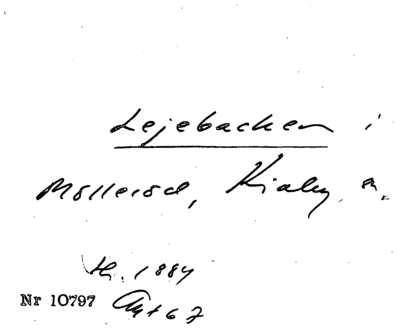 Lejebacken i
Mölleröd, Kiaby, sn.
H. 1884
Nr 10797